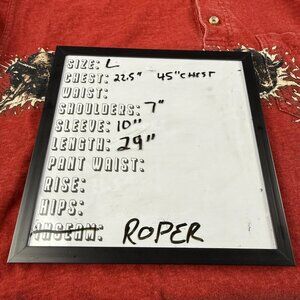 SIZE: L
CHEST: 22.5" 45" CHEST
WAIST:
SHOULDERS: 7"
SLEEVE: 10"
LENGTH: 29"
PANT WAIST:
RISE:
HIPS:
INSEAM: ROPER